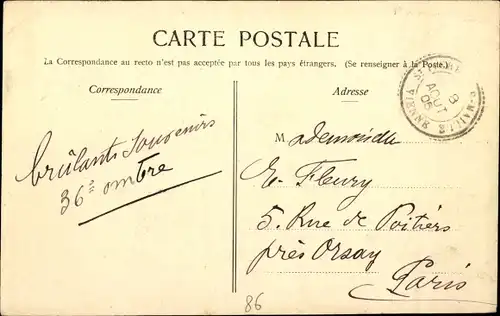 CARTE POSTALE
La Correspondance au recto n'est pas acceptée par tous les pays étrangers. (Se renseigner à la Poste.)
Correspondance
Adresse
8
AOUT
06
VIENNE
brûlants souvenirs
36° ombre
Mademoiselle
E. Fleury
5. Rue de Poitiers
près Orsay
Paris
86